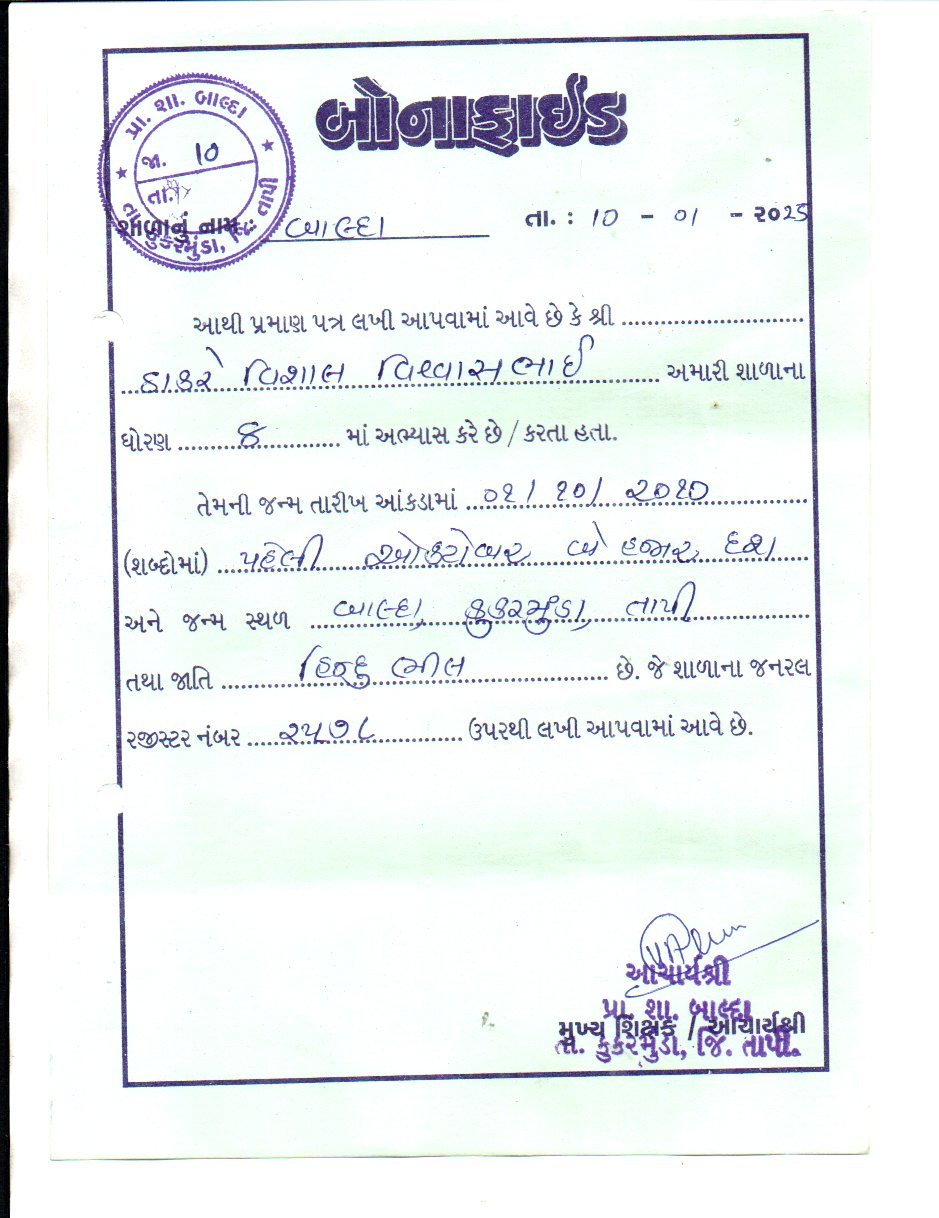 બોનાફાઈડ
પ્રા. શા. બાલ્દા
જા. 10
તા.
તા. કુકરમુંડા, જિ. તાપી
શાળાનું નામ બાલ્દા તા. : 10 - 01 - ૨૦25
આથી પ્રમાણ પત્ર લખી આપવામાં આવે છે કે શ્રી
ઠાકરે વિશાલ વિશ્વાસભાઈ અમારી શાળાના
ધોરણ 8 માં અભ્યાસ કરે છે / કરતા હતા.
તેમની જન્મ તારીખ આંકડામાં ૦૧ / ૧૦ / ૨૦૧૦
(શબ્દોમાં) પહેલી ઓક્ટોબર બે હજાર દશ
અને જન્મ સ્થળ બાલ્દા, કુકરમુંડા, તાપી
તથા જાતિ હિન્દુ ભીલ છે. જે શાળાના જનરલ
રજીસ્ટર નંબર ૨૫૭૮ ઉપરથી લખી આપવામાં આવે છે.
આચાર્યશ્રી
પ્રા. શા. બાલ્દા
મુખ્ય શિક્ષક / આચાર્યશ્રી
તા. કુકરમુંડા, જિ. તાપી.